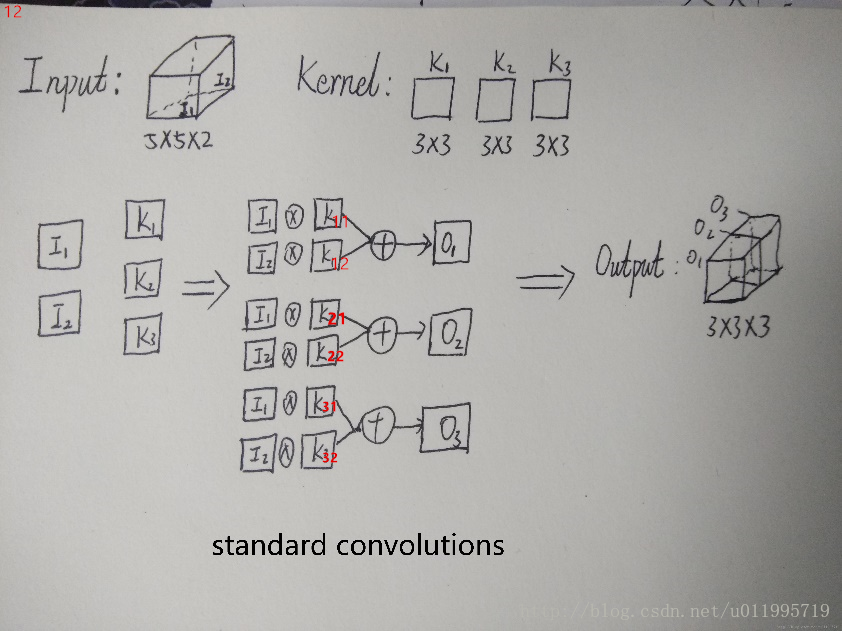 12
Input:
I₂
I₁
5X5X2
Kernel:
K₁ K₂ K₃
3X3 3X3 3X3
I₁
I₂
K₁
K₂
K₃
I₁ ⊗ K11
I₂ ⊗ K12
+
O₁
I₁ ⊗ K21
I₂ ⊗ K22
+
O₂
I₁ ⊗ K31
I₂ ⊗ K32
+
O₃
⇒
⇒
Output:
O₃
O₂
O₁
3X3X3
standard convolutions
http://blog.csdn.net/u011995719